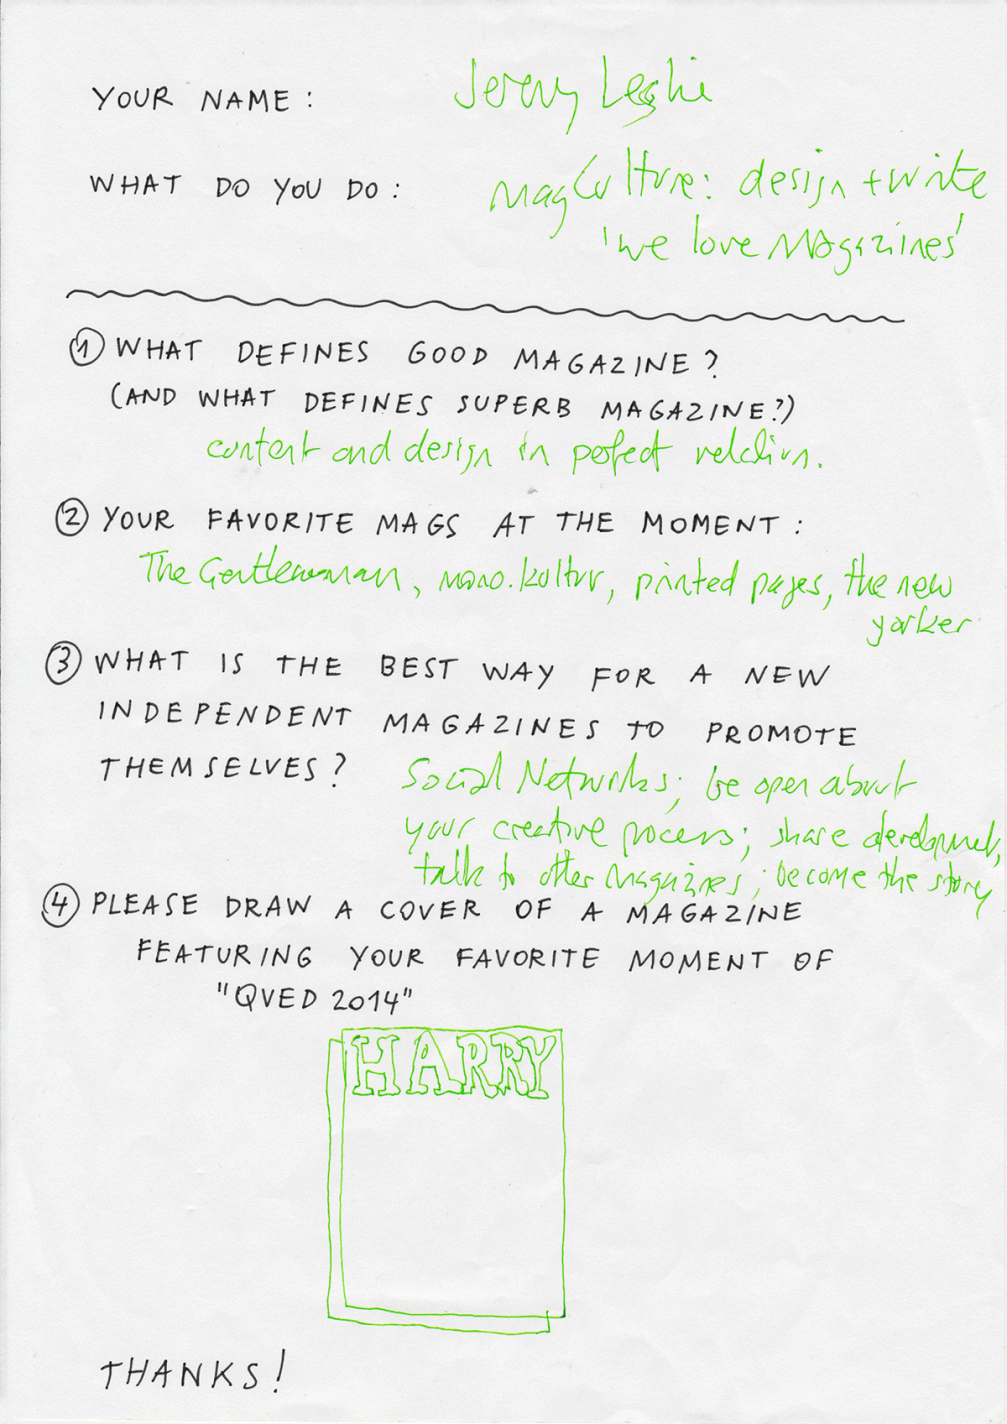 YOUR NAME: Jeremy Leslie
WHAT DO YOU DO: magCulture: design + write
'we love Magazines'
① WHAT DEFINES GOOD MAGAZINE?
(AND WHAT DEFINES SUPERB MAGAZINE?)
content and design in perfect relation.
② YOUR FAVORITE MAGS AT THE MOMENT:
The Gentlewoman, mono.kultur, printed pages, the new
yorker
③ WHAT IS THE BEST WAY FOR A NEW
INDEPENDENT MAGAZINES TO PROMOTE
THEMSELVES? Social Networks; be open about
your creative process; share development,
talk to other magazines; become the story
④ PLEASE DRAW A COVER OF A MAGAZINE
FEATURING YOUR FAVORITE MOMENT OF
"QVED 2014"
HARRY
THANKS!